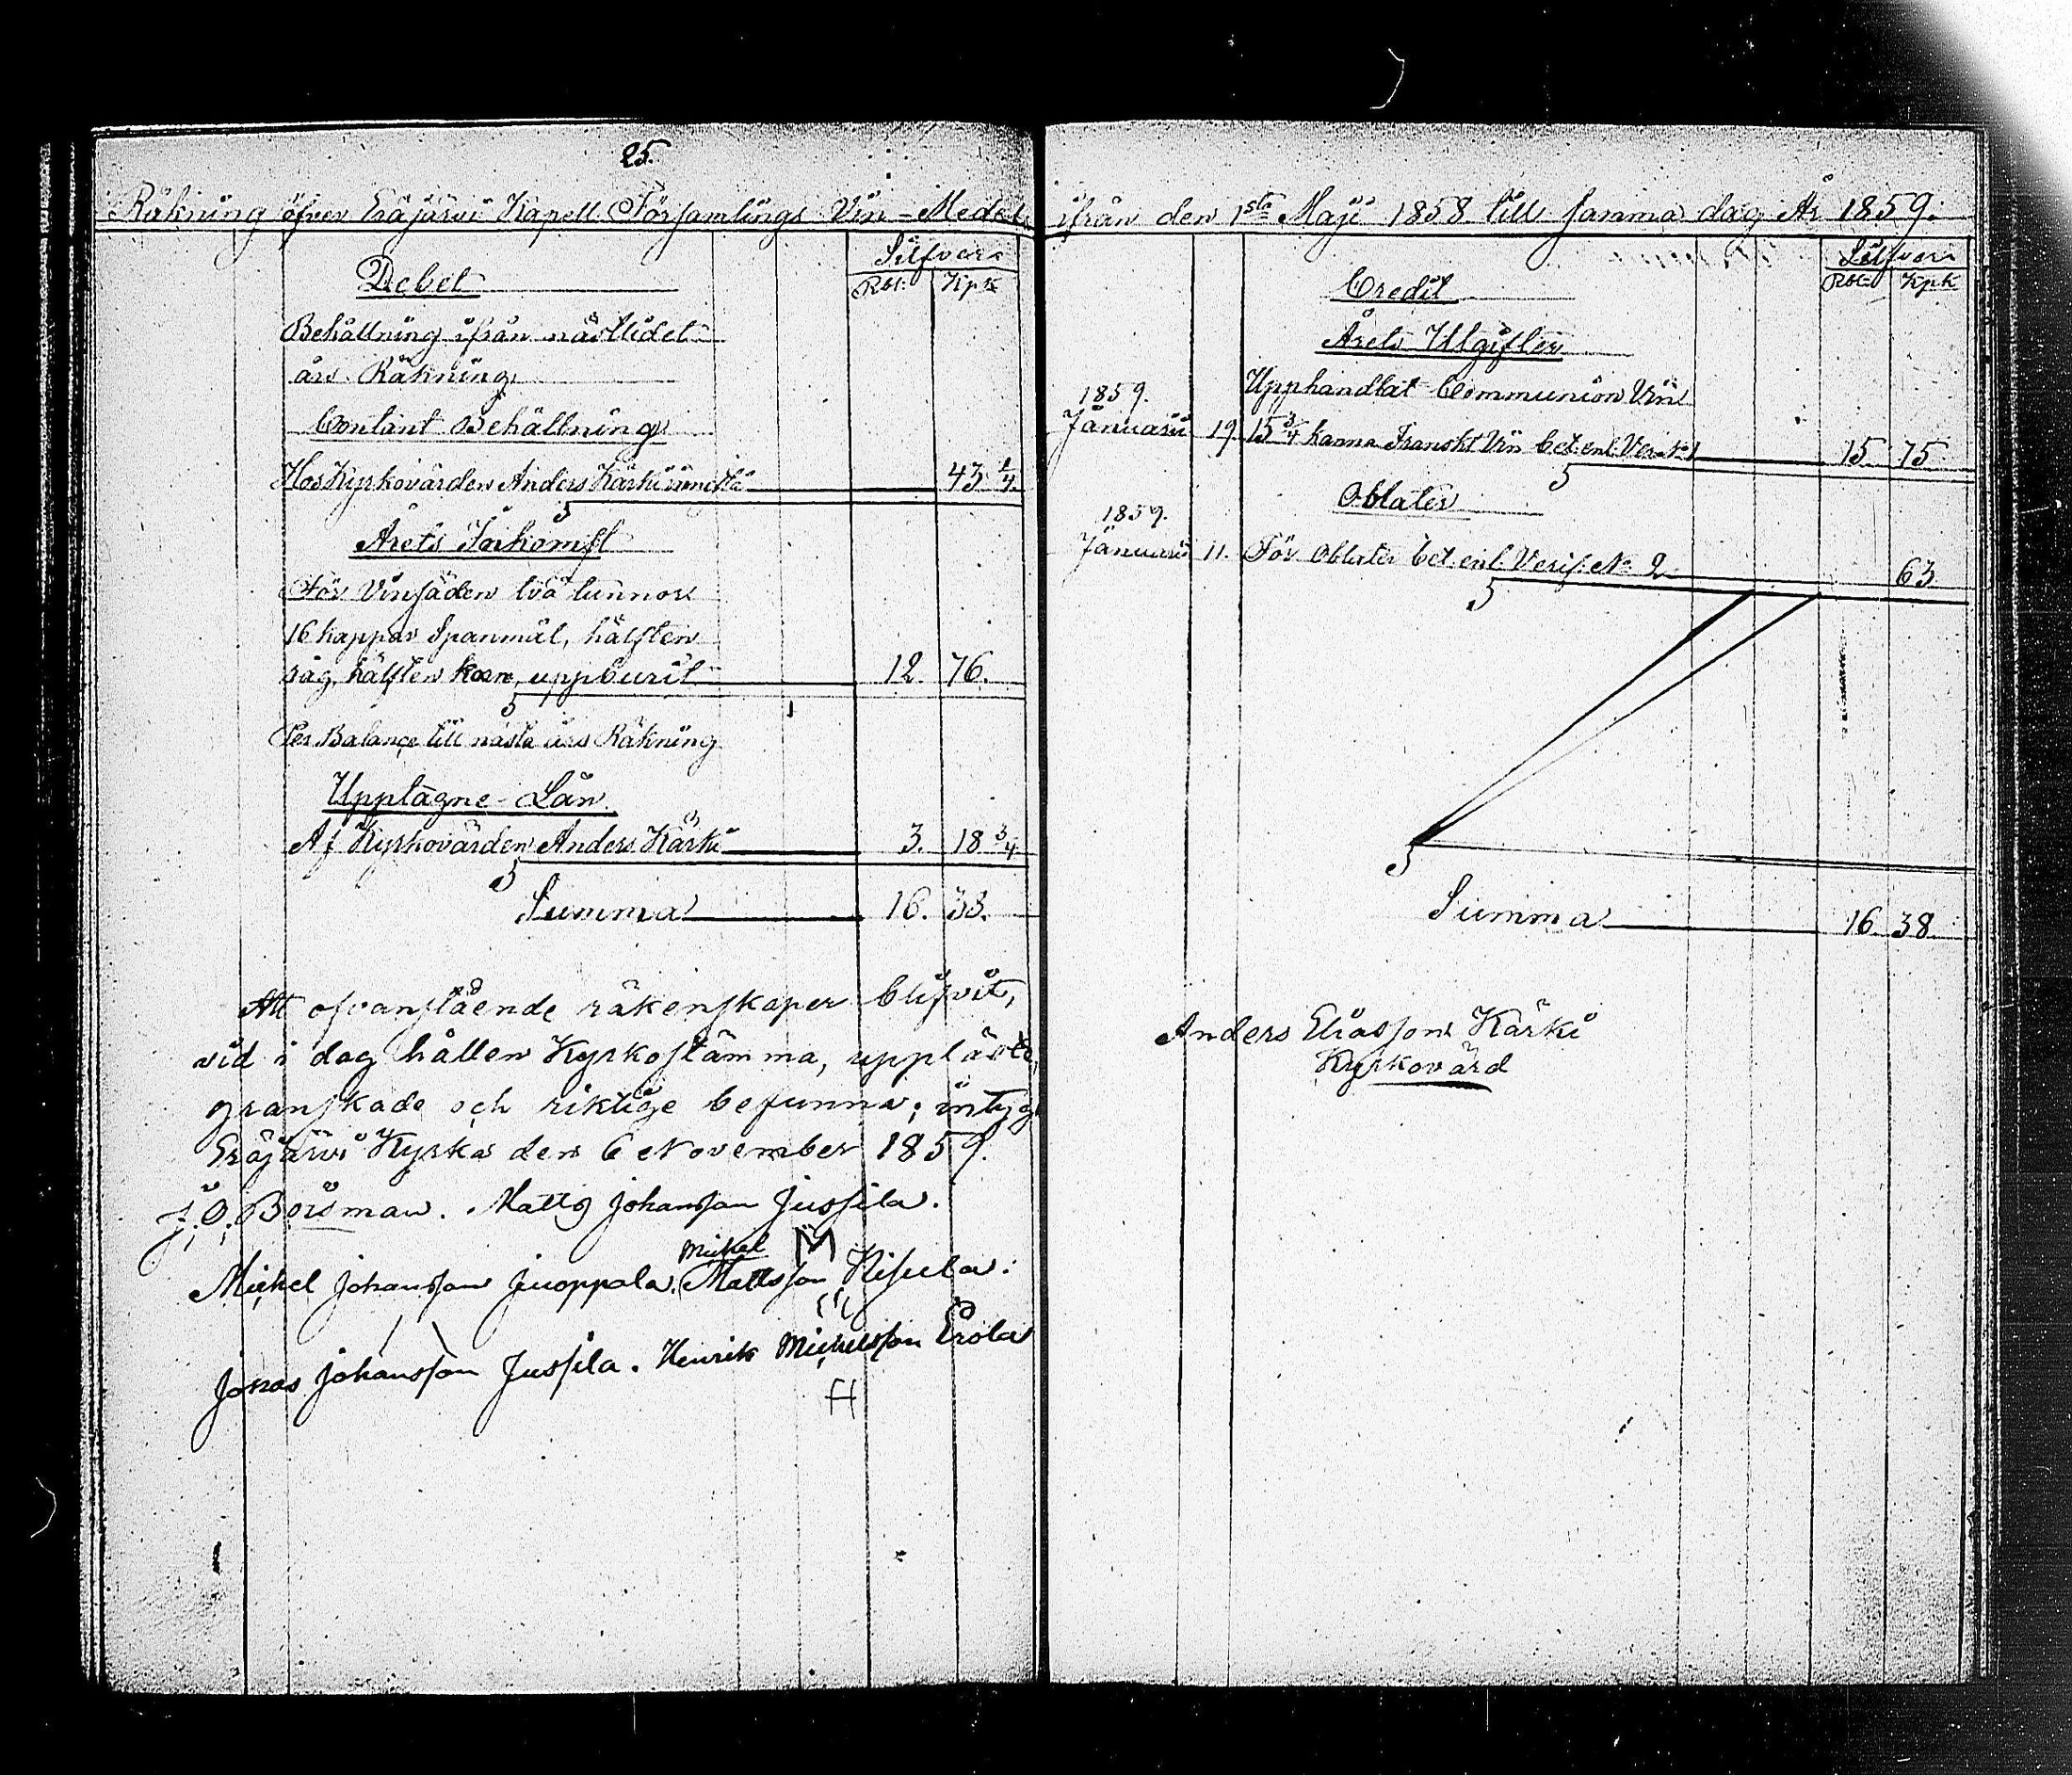 25.
Räkning öfver Eräjärvi Kapell Församlings Vin-Medel
Silfver
Debet
Rbl: Kpk
Behållning ifrån nästlidet
års Räkning
Contant Behållning
Hos Kyrkovärden Anders Kärki innestå 43 1/4.
Årets Inkomst
För Vinsäden två tunnor
16 kappar Spanmål, hälften
råg, hälften korn, uppburit 12. 76.
Per Balance till nästa års Räkning
Upptagne Lån
Af Kyrkovärden Anders Kärki 3. 18 3/4
Summa 16. 38.
Att ofvanstående räkenskaper blifvit,
vid i dag hållen Kyrkostämma, uppläste,
granskade och riktige befunna; intyga
Eräjärvi Kyrka den 6 November 1859.
J. O. Boisman. Matts Johansson Jussila.
Michel Johansson Juoppala. Michel Mattsson M Kisula.
Jonas Johansson Jussila. Henrik Michelsson Erola
H
ifrån den 1sta Maji 1858 till samma dag År 1859.
Silfver
Credit
Rbl: Kpk
Årets Utgifter
Upphandlat Communion Vin
1859.
Januarii 19. 15 3/4 kanna Franskt Vin bet. enl. Ver. No 1 15 75
Oblater
1859.
Januarii 11. För Oblater bet. enl. Verif. No 2 63
Summa 16 38
Anders Eliasson Kärki
Kyrkovärd